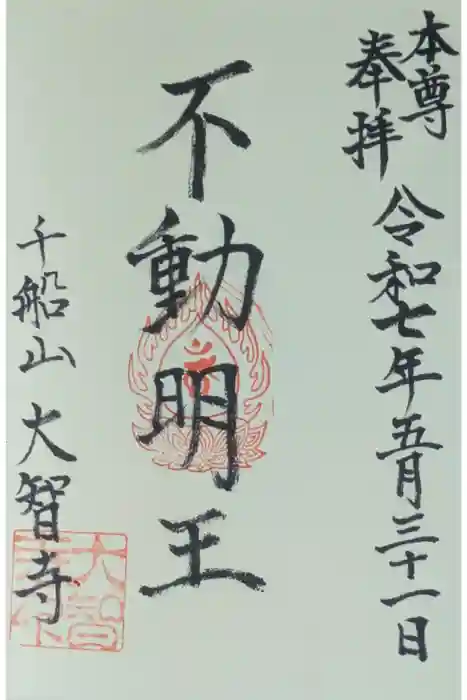 本尊
奉拝 令和七年五月三十一日
不動明王
千船山 大智寺